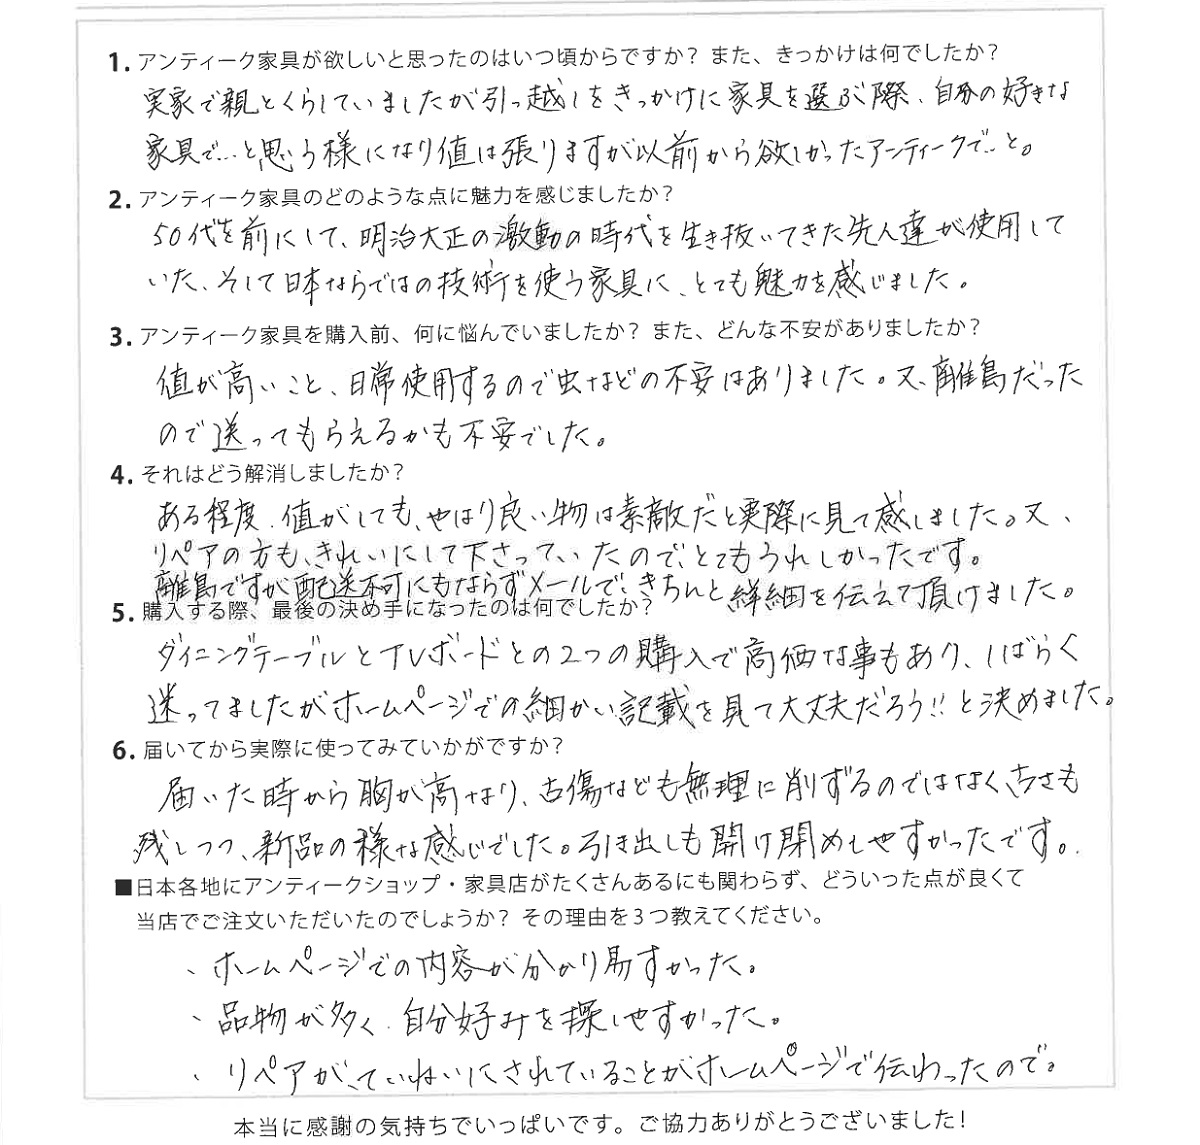 1. アンティーク家具が欲しいと思ったのはいつ頃からですか？ また、きっかけは何でしたか？
実家で親とくらしていましたが引っ越しをきっかけに家具を選ぶ際、自分の好きな
家具で…と思う様になり値は張りますが以前から欲しかったアンティークで…と。
2. アンティーク家具のどのような点に魅力を感じましたか？
50代を前にして、明治大正の激動の時代を生き抜いてきた先人達が使用して
いた、そして日本ならではの技術を使う家具に、とても魅力を感じました。
3. アンティーク家具を購入前、何に悩んでいましたか？ また、どんな不安がありましたか？
値が高いこと、日常使用するので虫などの不安はありました。又、離島だった
ので送ってもらえるかも不安でした。
4. それはどう解消しましたか？
ある程度、値がしても、やはり良い物は素敵だと実際に見て感しました。又、
リペアの方も、きれいにして下さっていたので、とてもうれしかったです。
離島ですが配送不可にもならずメールで、きちんと詳細を伝えて頂けました。
5. 購入する際、最後の決め手になったのは何でしたか？
ダイニングテーブルとTVボードとの2つの購入で高価な事もあり、しばらく
迷ってましたがホームページでの細かい記載を見て大丈夫だろう!!と決めました。
6. 届いてから実際に使ってみていかがですか？
届いた時から胸が高なり、古傷なども無理に削ずるのではなく、古さも
残しつつ、新品の様な感じでした。引き出しも開け閉めしやすかったです。
■日本各地にアンティークショップ・家具店がたくさんあるにも関わらず、どういった点が良くて
当店でご注文いただいたのでしょうか？ その理由を３つ教えてください。
、ホームページでの内容が分かり易すかった。
、品物が多く、自分好みを探しやすかった。
、リペアが、ていねいにされていることがホームページで伝わったので。
本当に感謝の気持ちでいっぱいです。ご協力ありがとうございました！